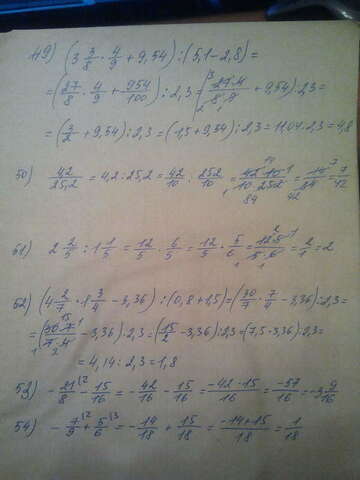 49) (3 3/8 · 4/9 + 9,54) : (5,1 - 2,8) =
= (27/8 · 4/9 + 954/100) : 2,3 = (27·4/8·9 + 9,54) : 2,3 =
= (3/2 + 9,54) : 2,3 = (1,5 + 9,54) : 2,3 = 11,04 : 2,3 = 4,8
50) 42/25,2 = 4,2 : 25,2 = 42/10 : 252/10 = 42·10/10·252 = 14/84 = 7/42
51) 2 2/5 : 1 1/5 = 12/5 : 6/5 = 12/5 · 5/6 = 12·5/5·6 = 2/1 = 2
52) (4 2/7 · 1 3/4 - 3,36) : (0,8 + 1,5) = (30/7 · 7/4 - 3,36) : 2,3 =
= (30·7/7·4 - 3,36) : 2,3 = (15/2 - 3,36) : 2,3 = (7,5 - 3,36) : 2,3 =
= 4,14 : 2,3 = 1,8
53) - 21/8 - 15/16 = - 42/16 - 15/16 = -42-15/16 = -57/16 = -3 9/16
54) - 7/9 + 5/6 = - 14/18 + 15/18 = -14+15/18 = 1/18